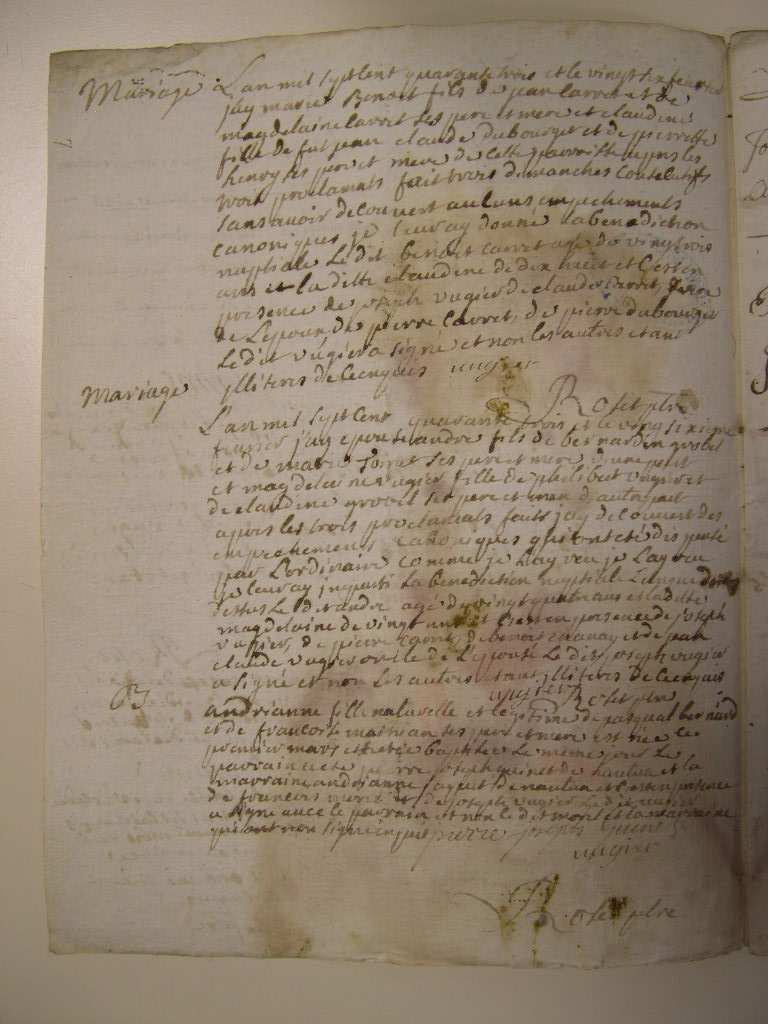 Mariage
L'an mil sept cent quarante trois et le vingt six fevrier
jay marié Benoit fils de jean Carret et de
magdelaine Carret ses pere et mere et claudine
fille de fut jean claude dubourget et de pierrette
henry ses pere et mere de cette parroisse apres les
trois proclamats fait trois dimanches consecutifs
sans avoir decouvert aucuns empechements
canoniques je leur ay donné la benediction
nuptiale le dit benoit Carret agé de vingt trois
ans et la ditte claudine de dix huit et c'est en
presence de joseph vugier de claude Carret,
de l'epoux de pierre Carret, de pierre dubourget
le dit vugier a signé et non les autres etant
jlliteres de ce enquis vugier
Roset ptre
Mariage
L'an mil sept cent quarante trois et le vingt sixieme
fevrier j'ay epousé andre fils de bernardin
et de marie ses pere et mere d'une part
et magdelaine vugier fille de philibert vugier et
de claudine ses pere et mere d'autre part
apres les trois proclamats faits j'ay decouvert des
empechements canoniques qui ont eté dispensé
par l'ordinaire comme je l'ay veu
je leur ay imparti la benediction nuptiale
dessus le dit andre agé de vingt quatre ans et la ditte
magdelaine de vingt un et c'est en presence de joseph
vugier, de pierre de benoit et de jean
claude vugier de l'epouse le dit joseph vugier
a signé et non les autres etant jlliteres de ce enquis
vugier Roset ptre
B
andrianne fille naturelle et legitime de pasqual bernard
et de françoise ses pere et mere est née le
premier mars et a eté baptisée le meme jour le
parrain a eté pierre joseph de et la
marraine andrianne de et c'est en presence
de françois et de joseph vugier le dit vugier
a signé avec le parrain et non le dit et la marraine
qui ont non signé enquis pierre joseph
vugier
Roset ptre